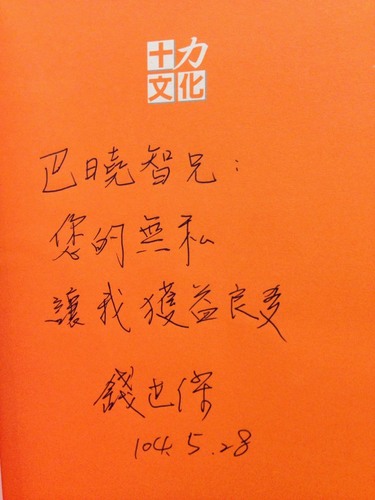 十力
文化
巴曉智兄：
您的無私
讓我獲益良多
錢世傑
104.5.28